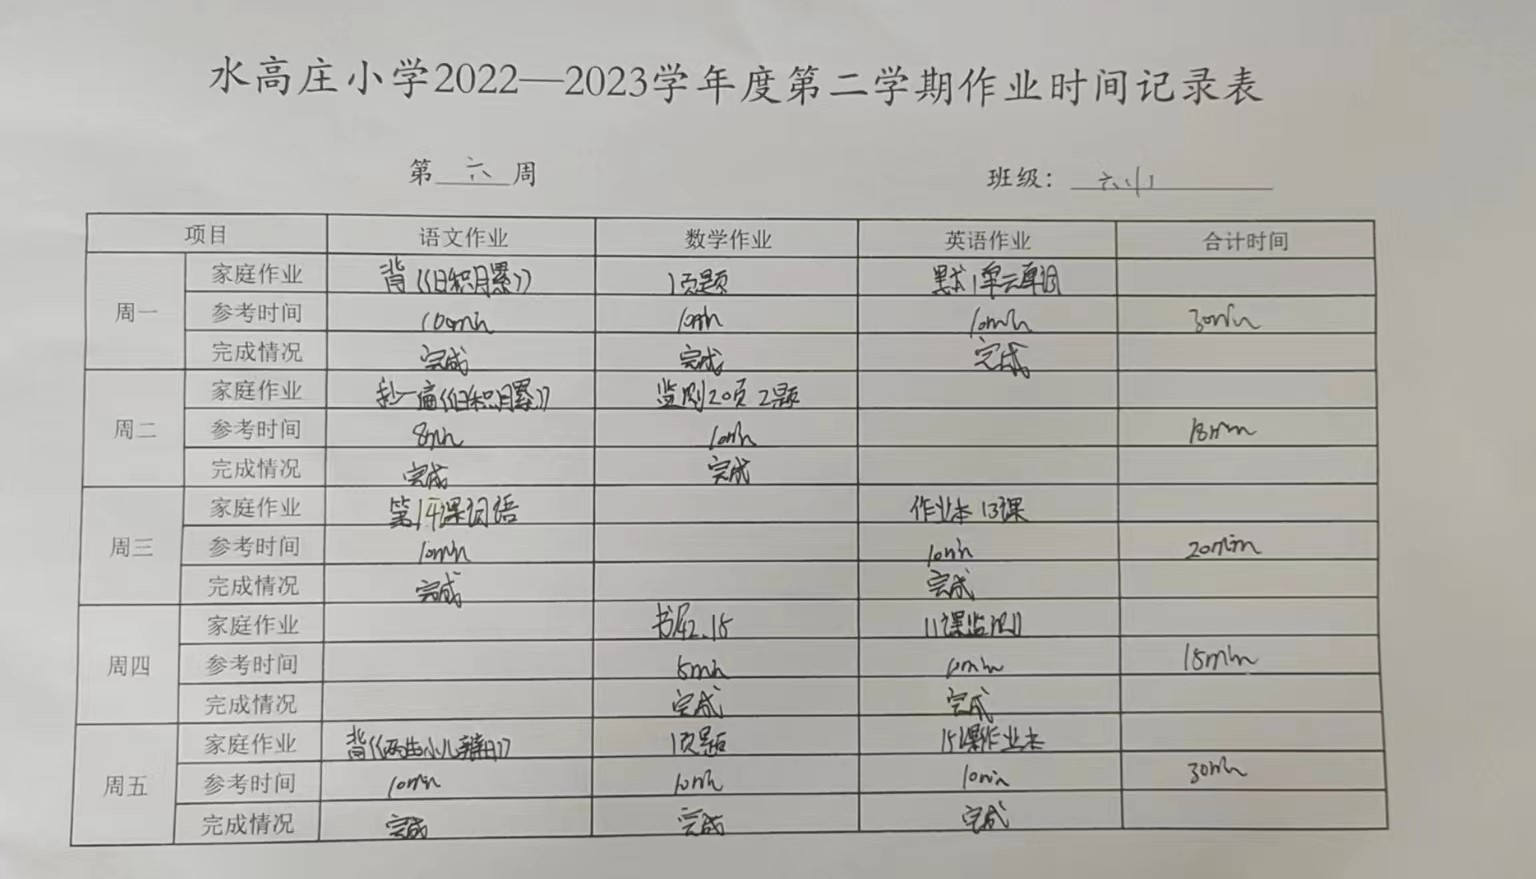 水高庄小学2022—2023学年度第二学期作业时间记录表
第 六 周 班级： 六(1)
项目 语文作业 数学作业 英语作业 合计时间
周一
家庭作业 背《日积月累》 1页题 默1单元单词
参考时间 10min 10min 10min 30min
完成情况 完成 完成 完成
周二
家庭作业 抄一遍《日积月累》 监测20页2题
参考时间 8min 10min 18min
完成情况 完成 完成
周三
家庭作业 第14课词语 作业本13课
参考时间 10min 10min 20min
完成情况 完成 完成
周四
家庭作业 书42.15 11课监测
参考时间 5min 10min 15min
完成情况 完成 完成
周五
家庭作业 背《两小儿辩日》 1页题 15课作业本
参考时间 10min 10min 10min 30min
完成情况 完成 完成 完成